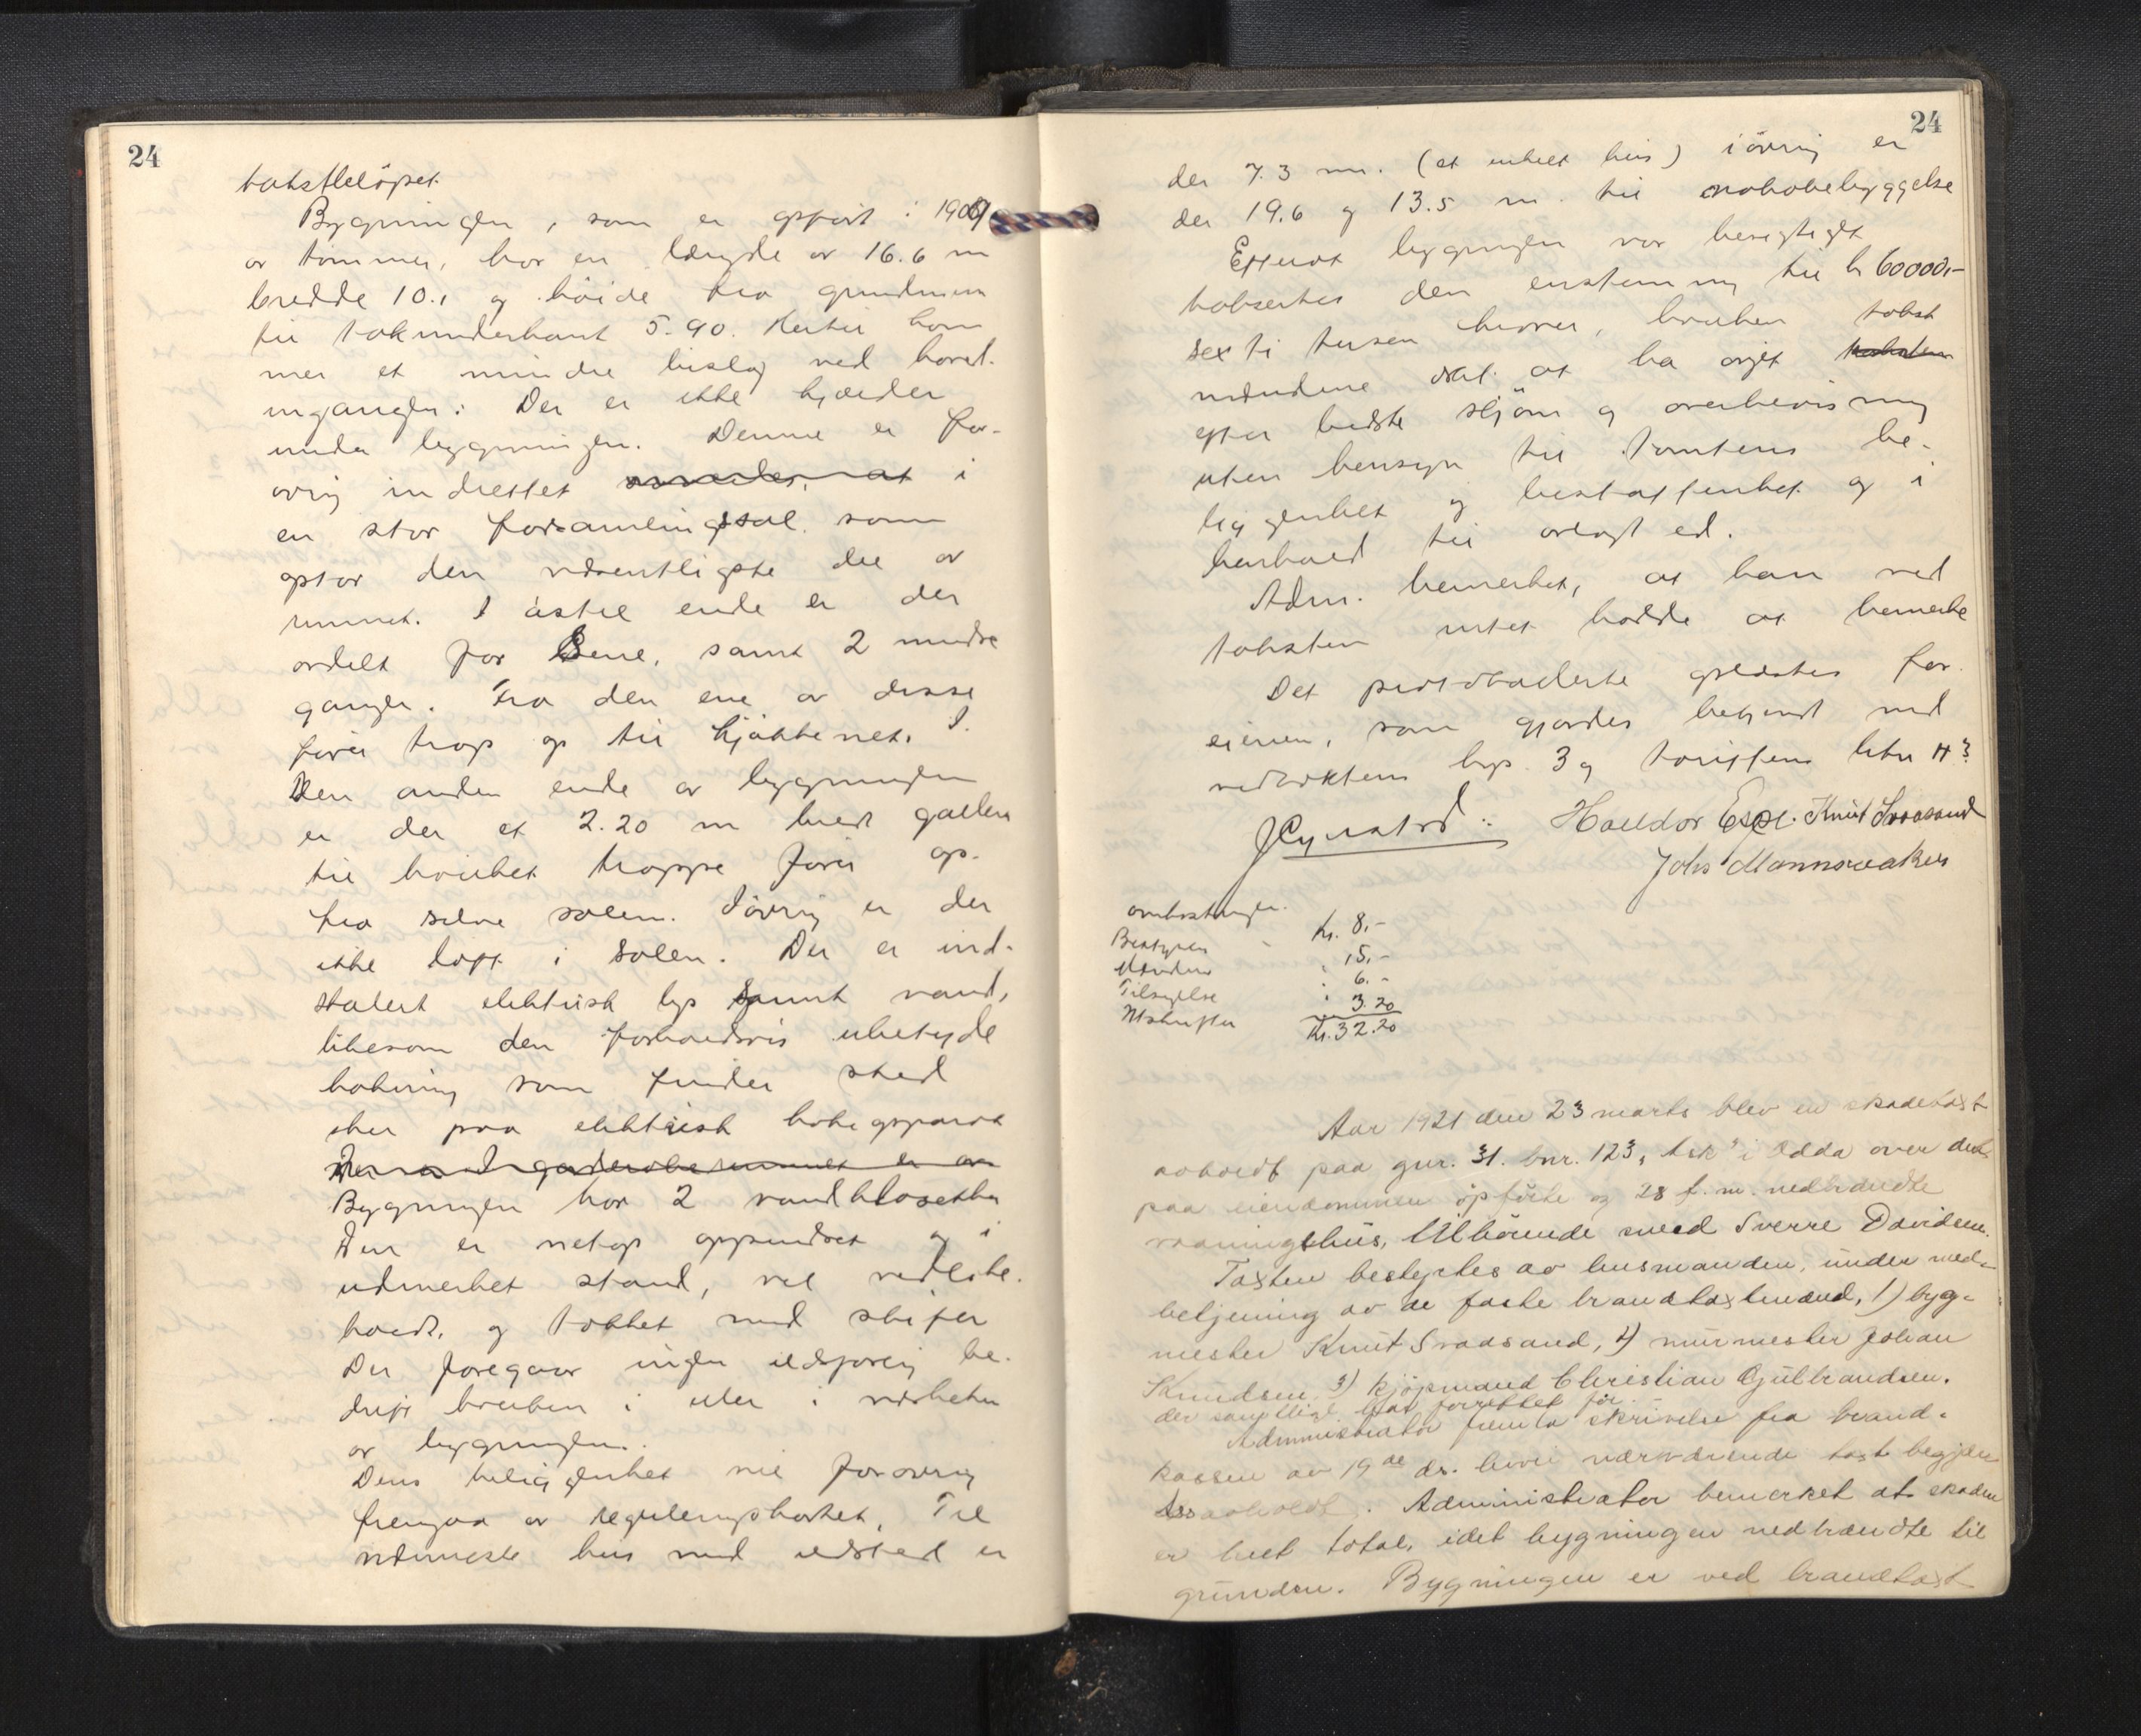 24
takstbeløpet.
Bygningen, som er opført i 1909
av tømmer, har en længde av 16.6 m
bredde 10.1 og høide fra grundmur
til takunderkant 5.90. Hertil kom
mer et mindre bislag ved hoved-
ingangen. Der er ikke kjælder
under bygningen. Denne er for-
øvrig indrettet i
en stor forsamlingssal som
optar den væsentligste del av
rummet. I østre ende er der
avdelt for Scene, samt 2 mindre
ganger. Fra den ene av disse
fører trap op til kjøkkenet. I
den anden ende av bygningen
er der et 2.20 m bredt galleri
til hvilket trappe fører op
fra selve salen. Iøvrig er der
ikke loft i salen. Der er ind-
stalert elektrisk lys samt vand,
likesom den forholdsvis ubetyde
kokning som finder sted
sker paa elektrisk kokeapparat
Der garderoberummet er
Bygningen har 2 vandklosetter
Den er netop oppudset og i
udmerket stand, vel vedlike-
holdt, og tækket med skifer
Der foregaar ingen ildsfarlig be-
drift hverken i eller i nærheten
av bygningen.
Dens beliggenhet vil forøvrig
fremgaa av reguleringskartet. Til
nærmeste hus med ildsted er
24
der 7.3 m. (et enkelt hus) iøvrig er
der 19.6 og 13.5 m. til nabobebyggelse
Efterat bygningen var besigtiget
takseredes den enstemmig til kr 60000,-
sexti tusen kroner, hvilken takst
mændene at ha avgit taksten
efter bedste skjøn og overbevisning
uten hensyn til tomtens be-
liggenhet og beskaffenhet og i
henhold til avlagt ed.
Adm. bemerket, at han ved
taksten intet hadde at bemerke
Det passerte oplæstes for
eieren, som gjordes bekjendt med
vedtektens kap. 3 og tariffens litr H3
Halldor Espe. Knut Svaasand
Johs Mannsaaker
omkostninger.
Bestyrer kr. 8,-
Mændene " 15,-
Tilsigelse " 6.-
Utskrifter " 3.20
Kr. 32.20
Aar 1921 den 23 marts blev en skadetaxt
avholdt paa gnr. 31. bnr. 123, "Ask" i Odda over det
paa eiendommen opførte og 28 f. m. nedbrændte
vaaningshus, tilhørende smed Sverre Davidsen.
Taxten bestyrtes av lensmanden, under med-
betjening av de faste brandtaxtmænd, 1) byg-
mester Knut Svaasand, 2) murmester Johan
Knudsen, 3) kjøpmand Christian Gulbrandsen.
der samtlige har forrettet før
Administrator fremla skrivelse fra brand-
kassen av 19de ds. hvori nærværende taxt begjær-
tes avholdt. Administrator bemerket at skaden
er helt total, idet bygningen nedbrændte til
grunden. Bygningen er ved brandtaxt